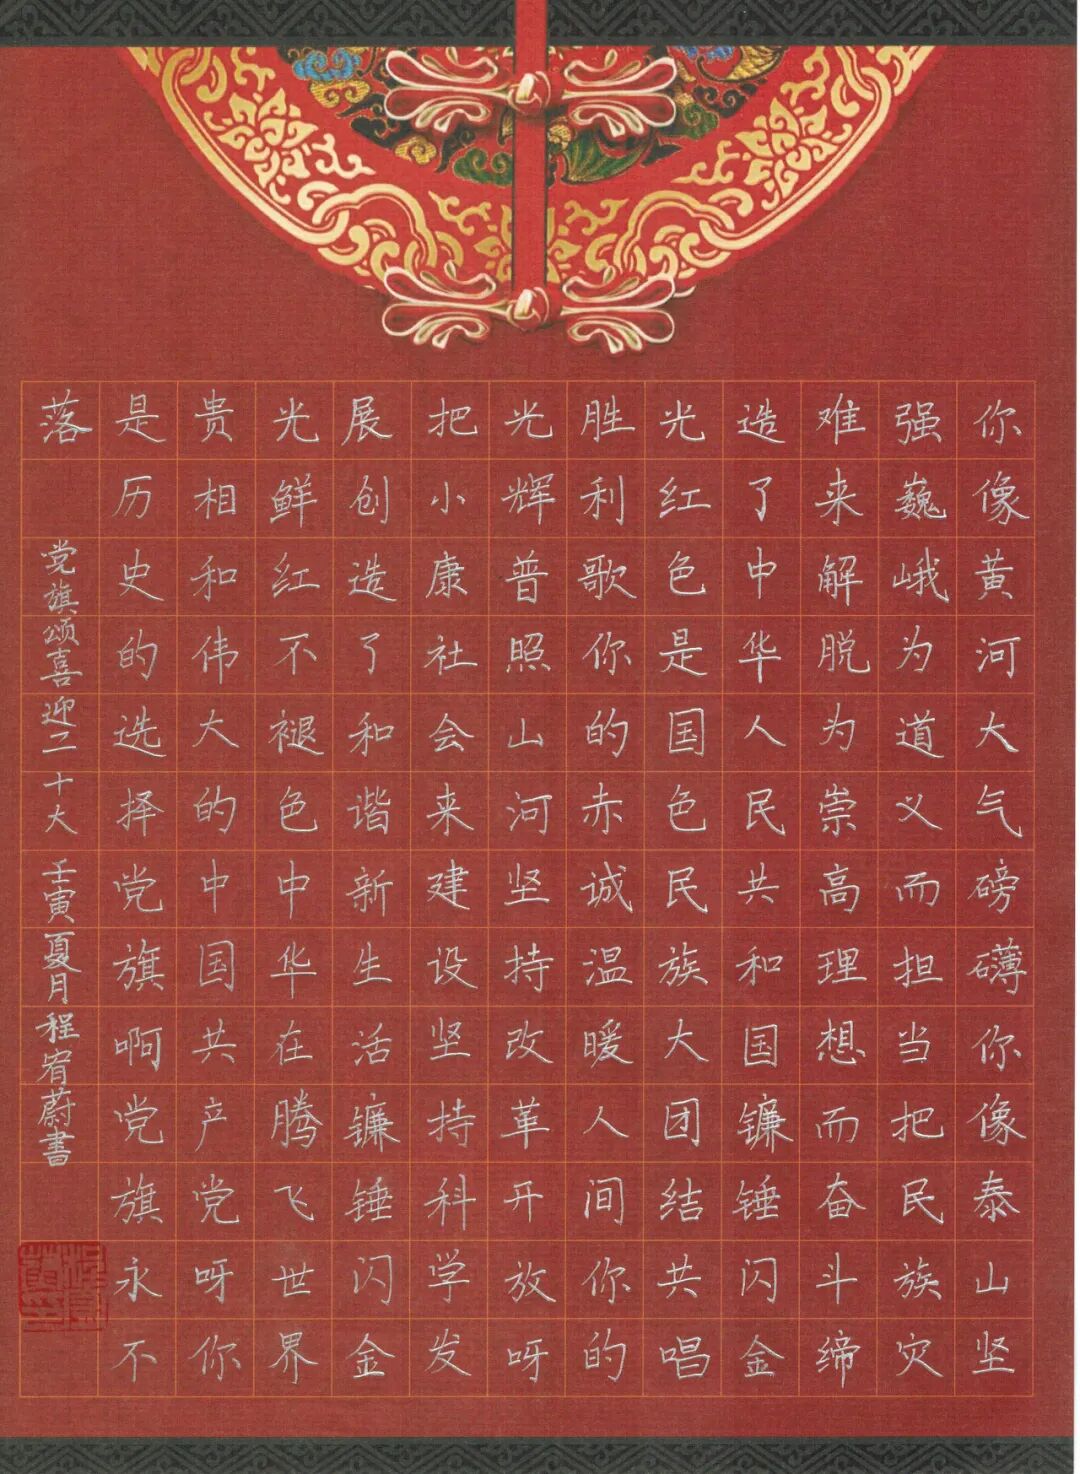 你像黄河大气磅礴你像泰山坚
强巍峨为道义而担当把民族灾
难来解脱为崇高理想而奋斗缔
造了中华人民共和国镰锤闪金
光红色是国色民族大团结共唱
胜利歌你的赤诚温暖人间你的
光辉普照山河坚持改革开放呀
把小康社会来建设坚持科学发
展创造了和谐新生活镰锤闪金
光鲜红不褪色中华在腾飞世界
贵相和伟大的中国共产党呀你
是历史的选择党旗啊党旗永不
落
党旗颂喜迎二十大 壬寅夏月程宥蔚書